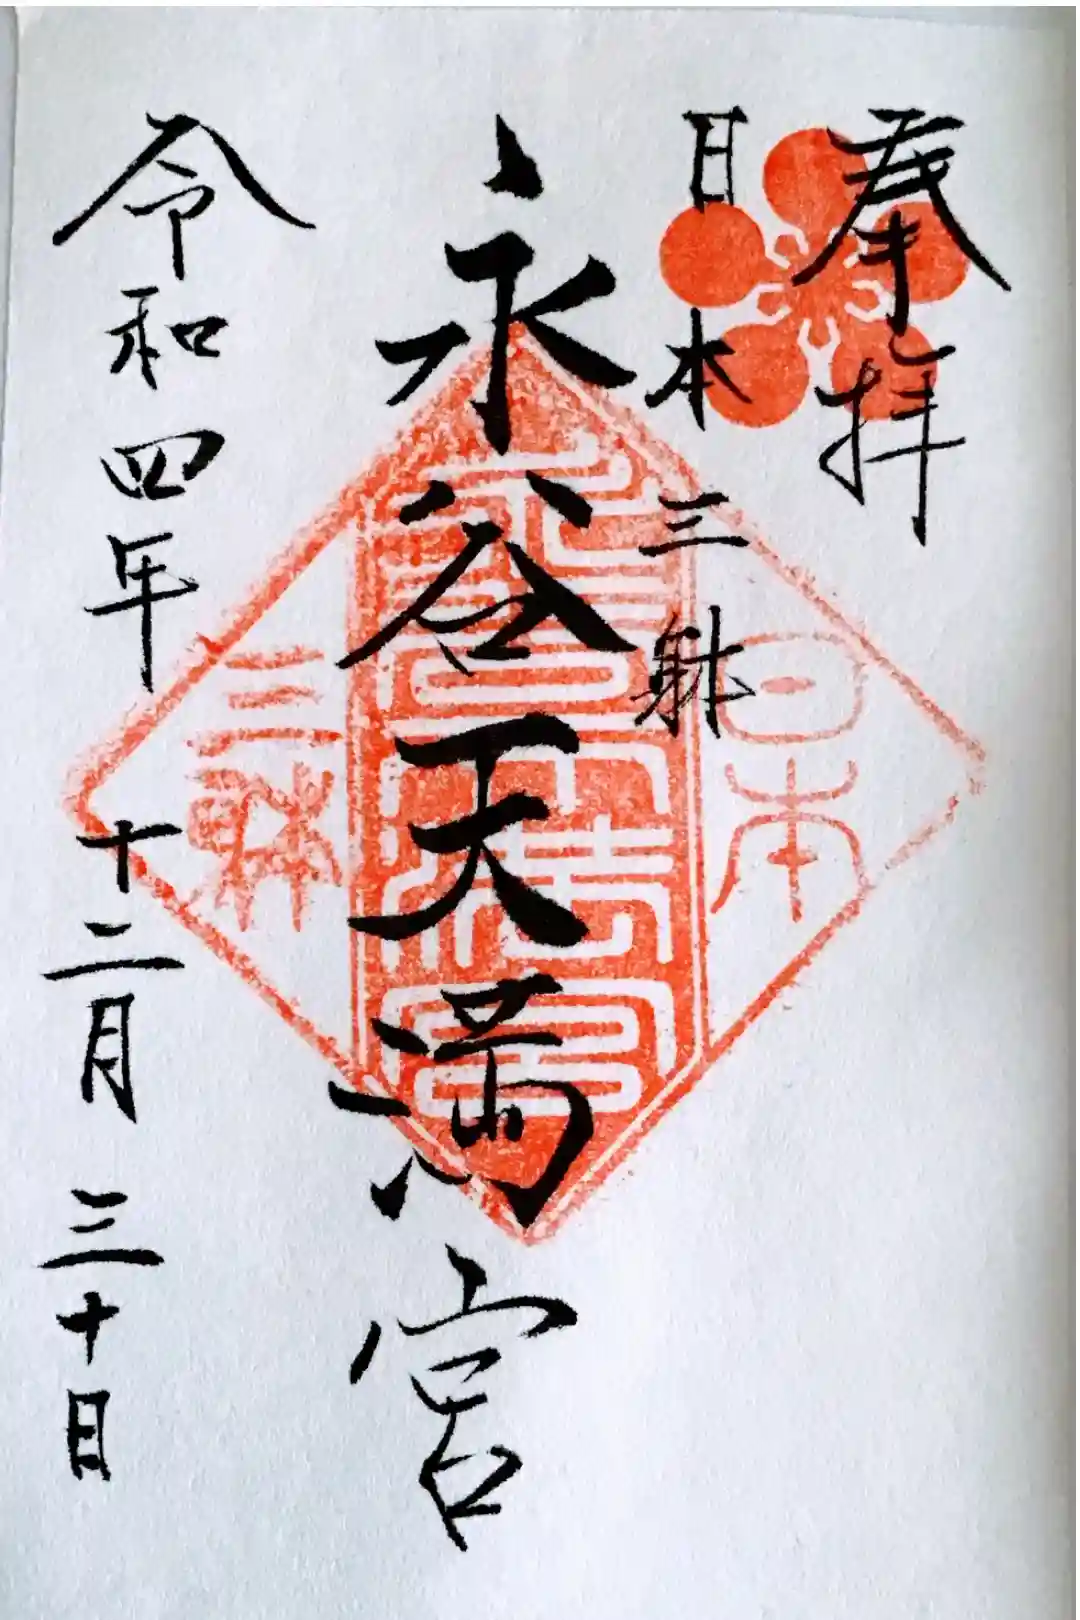 奉拝
日本三躰
永谷天満宮
令和四年十二月三十日
日本
三躰
永谷天満宮